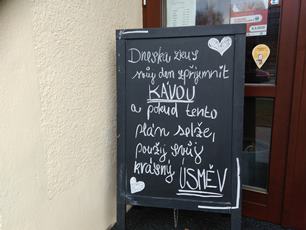 Dneska zkus
svůj den zpříjemnit
KÁVOU
a pokud tento
plán selže,
použij svůj
krásný ÚSMĚV